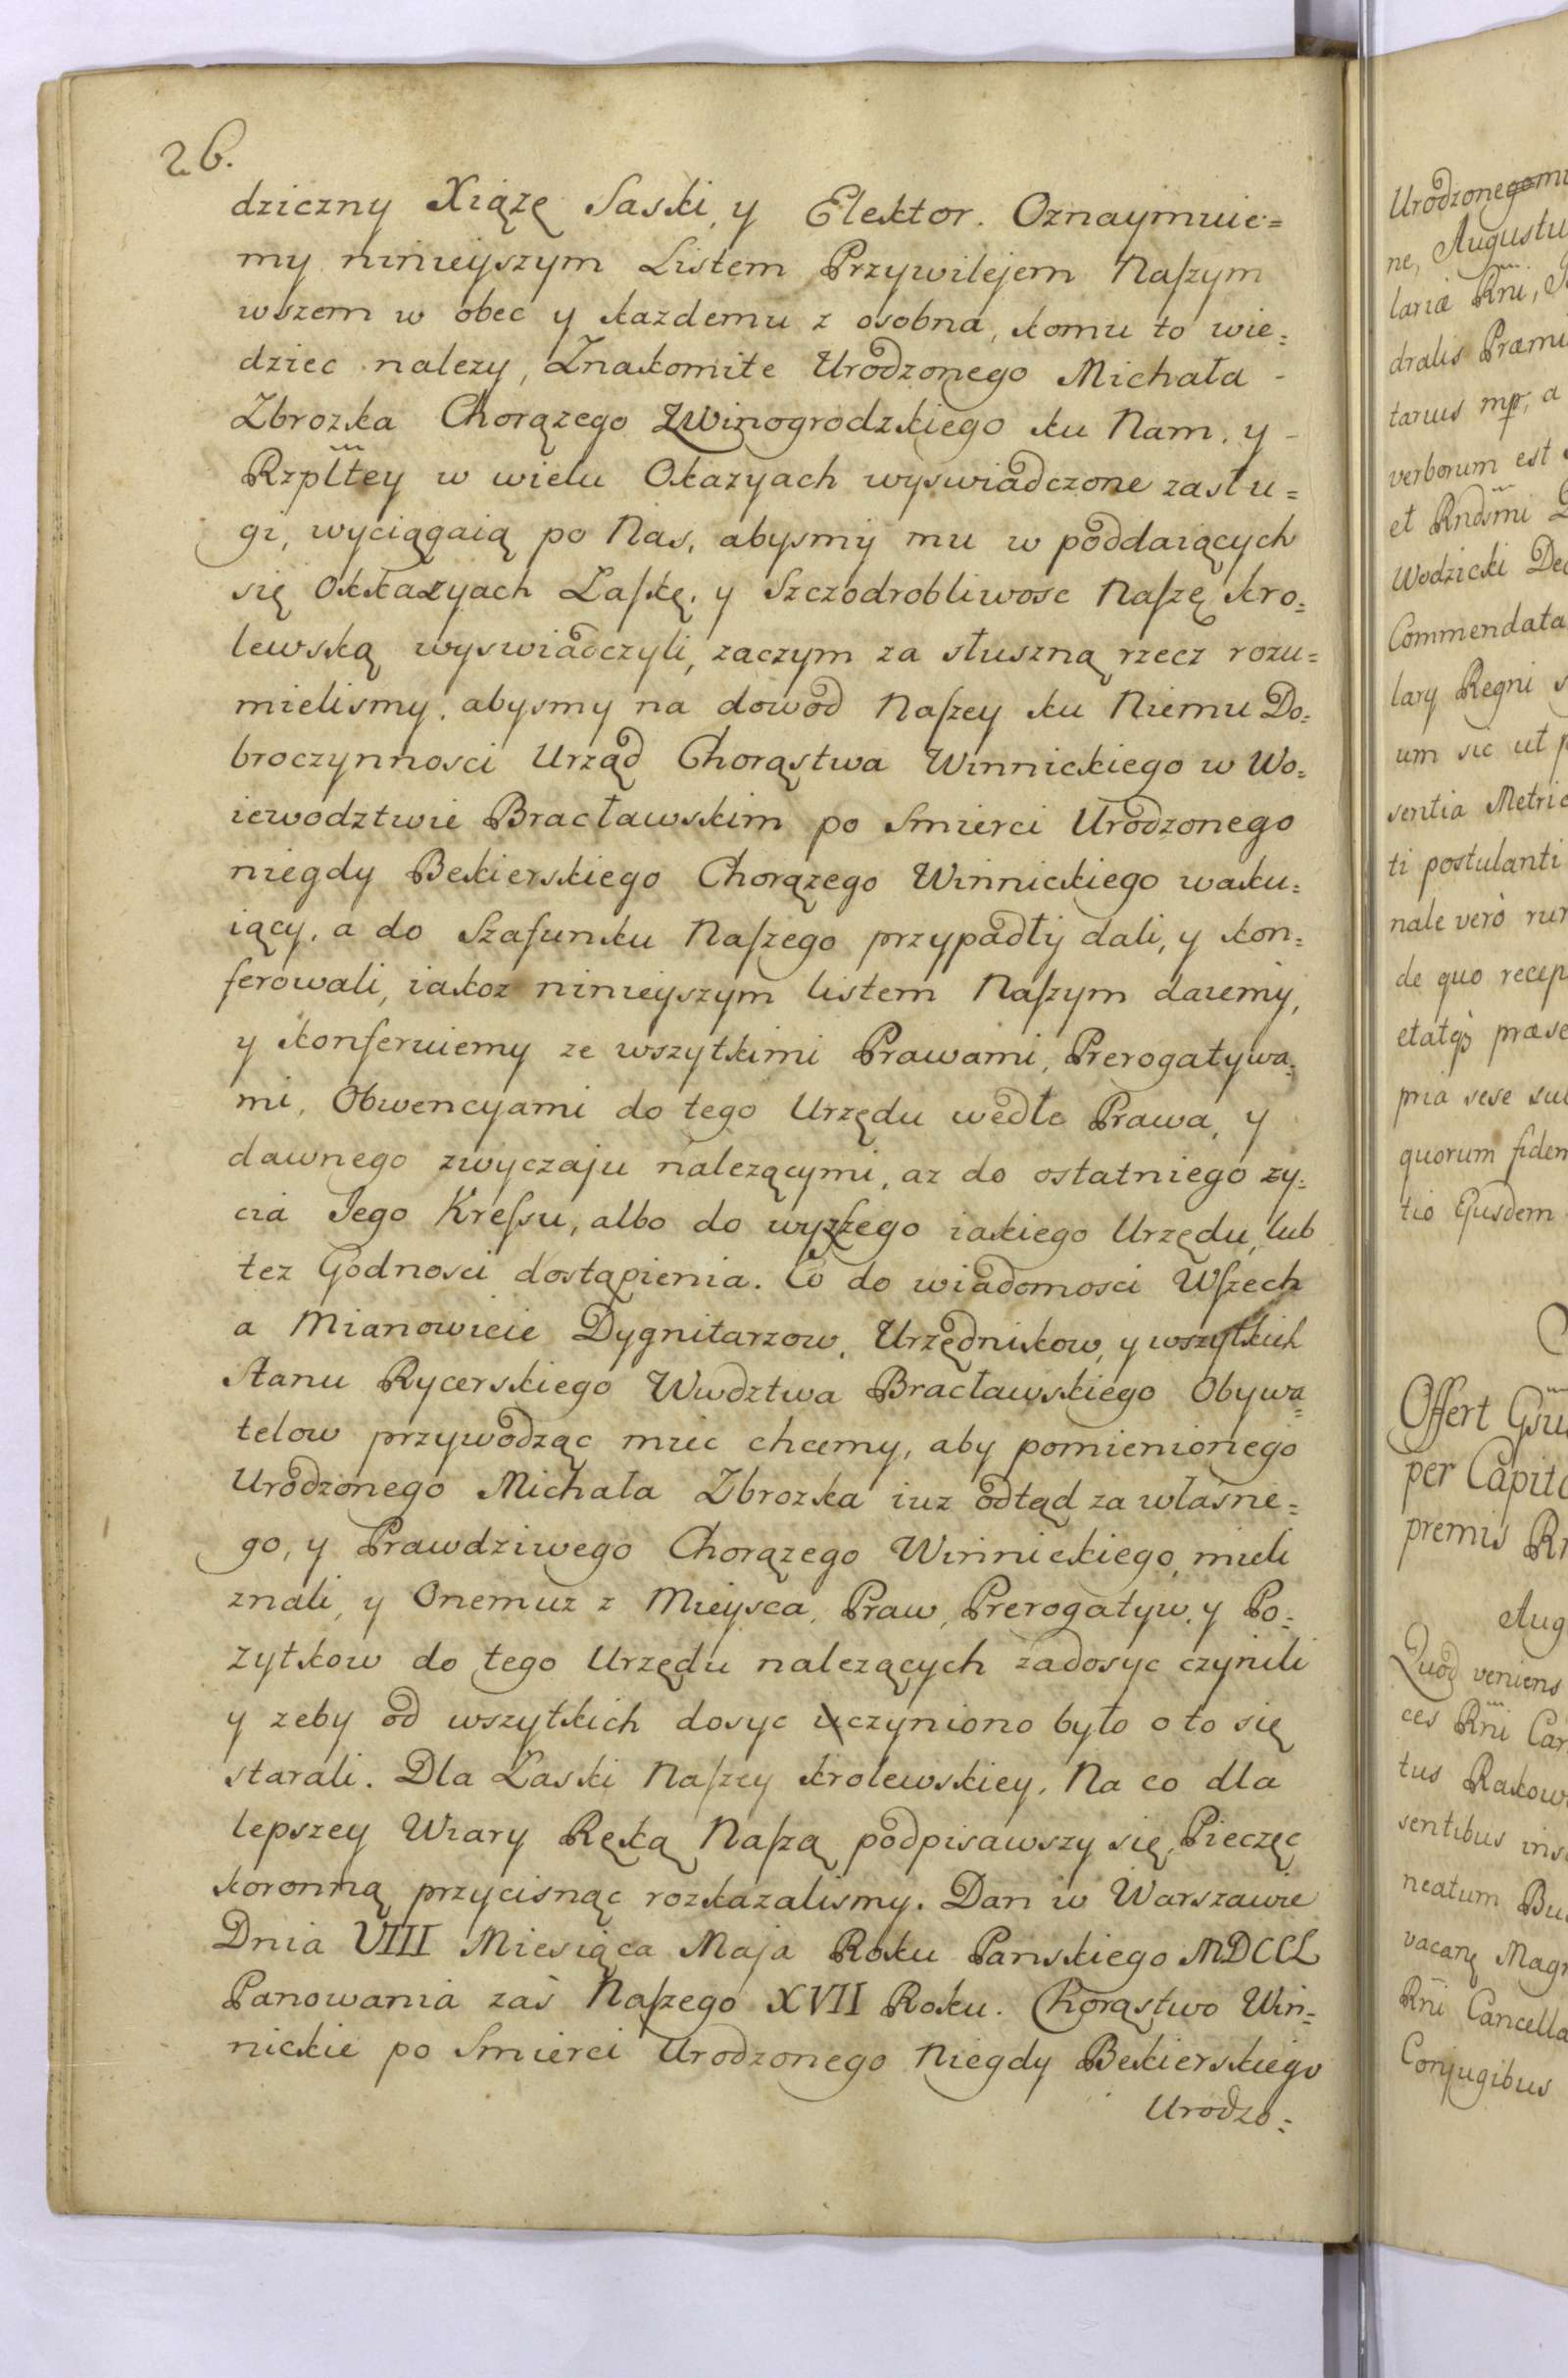 26.
dziczny Xiązę Saski, y Elektor. Oznaymuie=
my ninieyszym Listem Przywilejem Naszym
wszem w obec y kazdemu z osobna, komu to wie=
dziec nalezy, Znakomite Urodzonego Michała -
Zbrozka Chorązego Zwinogrodzkiego ku Nam, y -
Rzplttey w wielu Okazyach wyswiadczone zasłu=
gi, wyciągaią po Nas, abysmy mu w poddaiących
się okkazyach Łaskę, y Szczodrobliwosc Naszę kro=
lewską wyswiadczyli, zaczym za słuszną rzecz rozu=
mielismy, abysmy na dowod Naszey ku Niemu Do=
broczynnosci Urząd Chorąstwa Winnickiego w Wo=
iewodztwie Bracławskim po Smierci Urodzonego
niegdy Bekierskiego Chorązego Winnickiego waku=
iący, a do Szafunku Naszego przypadły dali, y kon=
ferowali, iakoz ninieyszym listem Naszym daiemy,
y konferuiemy ze wszytkimi Prawami, Prerogatywa=
mi, Obwencyami do tego Urzędu wedle Prawa, y
dawnego zwyczaju nalezącymi, az do ostatniego zy=
cia Jego Kressu, albo do wyzszego iakiego Urzędu, lub
tez Godnosci dostąpienia. Co do wiadomosci Wszech
a Mianowicie Dygnitarzow, Urzędnikow, y wszytkich
Stanu Rycerskiego Wwdztwa Bracławskiego Obywa=
telow przywodząc miec chcemy, aby pomienionego
Urodzonego Michała Zbrozka iuz odtąd za własne=
go, y Prawdziwego Chorązego Winnickiego, mieli
znali, y Onemuz z Mieysca, Praw, Prerogatyw, y Po=
zytkow do tego Urzędu nalezących zadosyc czynili
y zeby od wszytkich dosyc uczyniono było o to się
starali. Dla Łaski Naszey krolewskiey. Na co dla
lepszey Wiary Ręką Naszą podpisawszy się, Pieczęc
koronną przycisnąc rozkazalismy. Dan w Warszawie
Dnia VIII Miesiąca Maja Roku Panskiego MDCCL
Panowania zaś Naszego XVII Roku. Chorąstwo Win=
nickie po Smierci Urodzonego Niegdy Bekierskiego
Urodzo=
Urodzonegomu
ne, Augustu
lariæ Rni,
dralis Præmi
tarius mp, a
verborum est
et Rndsmi
Wodzicki Dec
Commendata
lary Regni
um sic ut
sentia Metric
ti postulanti
nale verò rur
de quo recep
etatq præse
pria sese sub
quorum fidem
tio Ejusdem
Offert Gsu
per Capit
premis
Aug
Quod veniens
ces Rni Can
tus Rakow
sentibus ins
neatum Bu
vacan Mag
Rni Cancella
Conjugibus